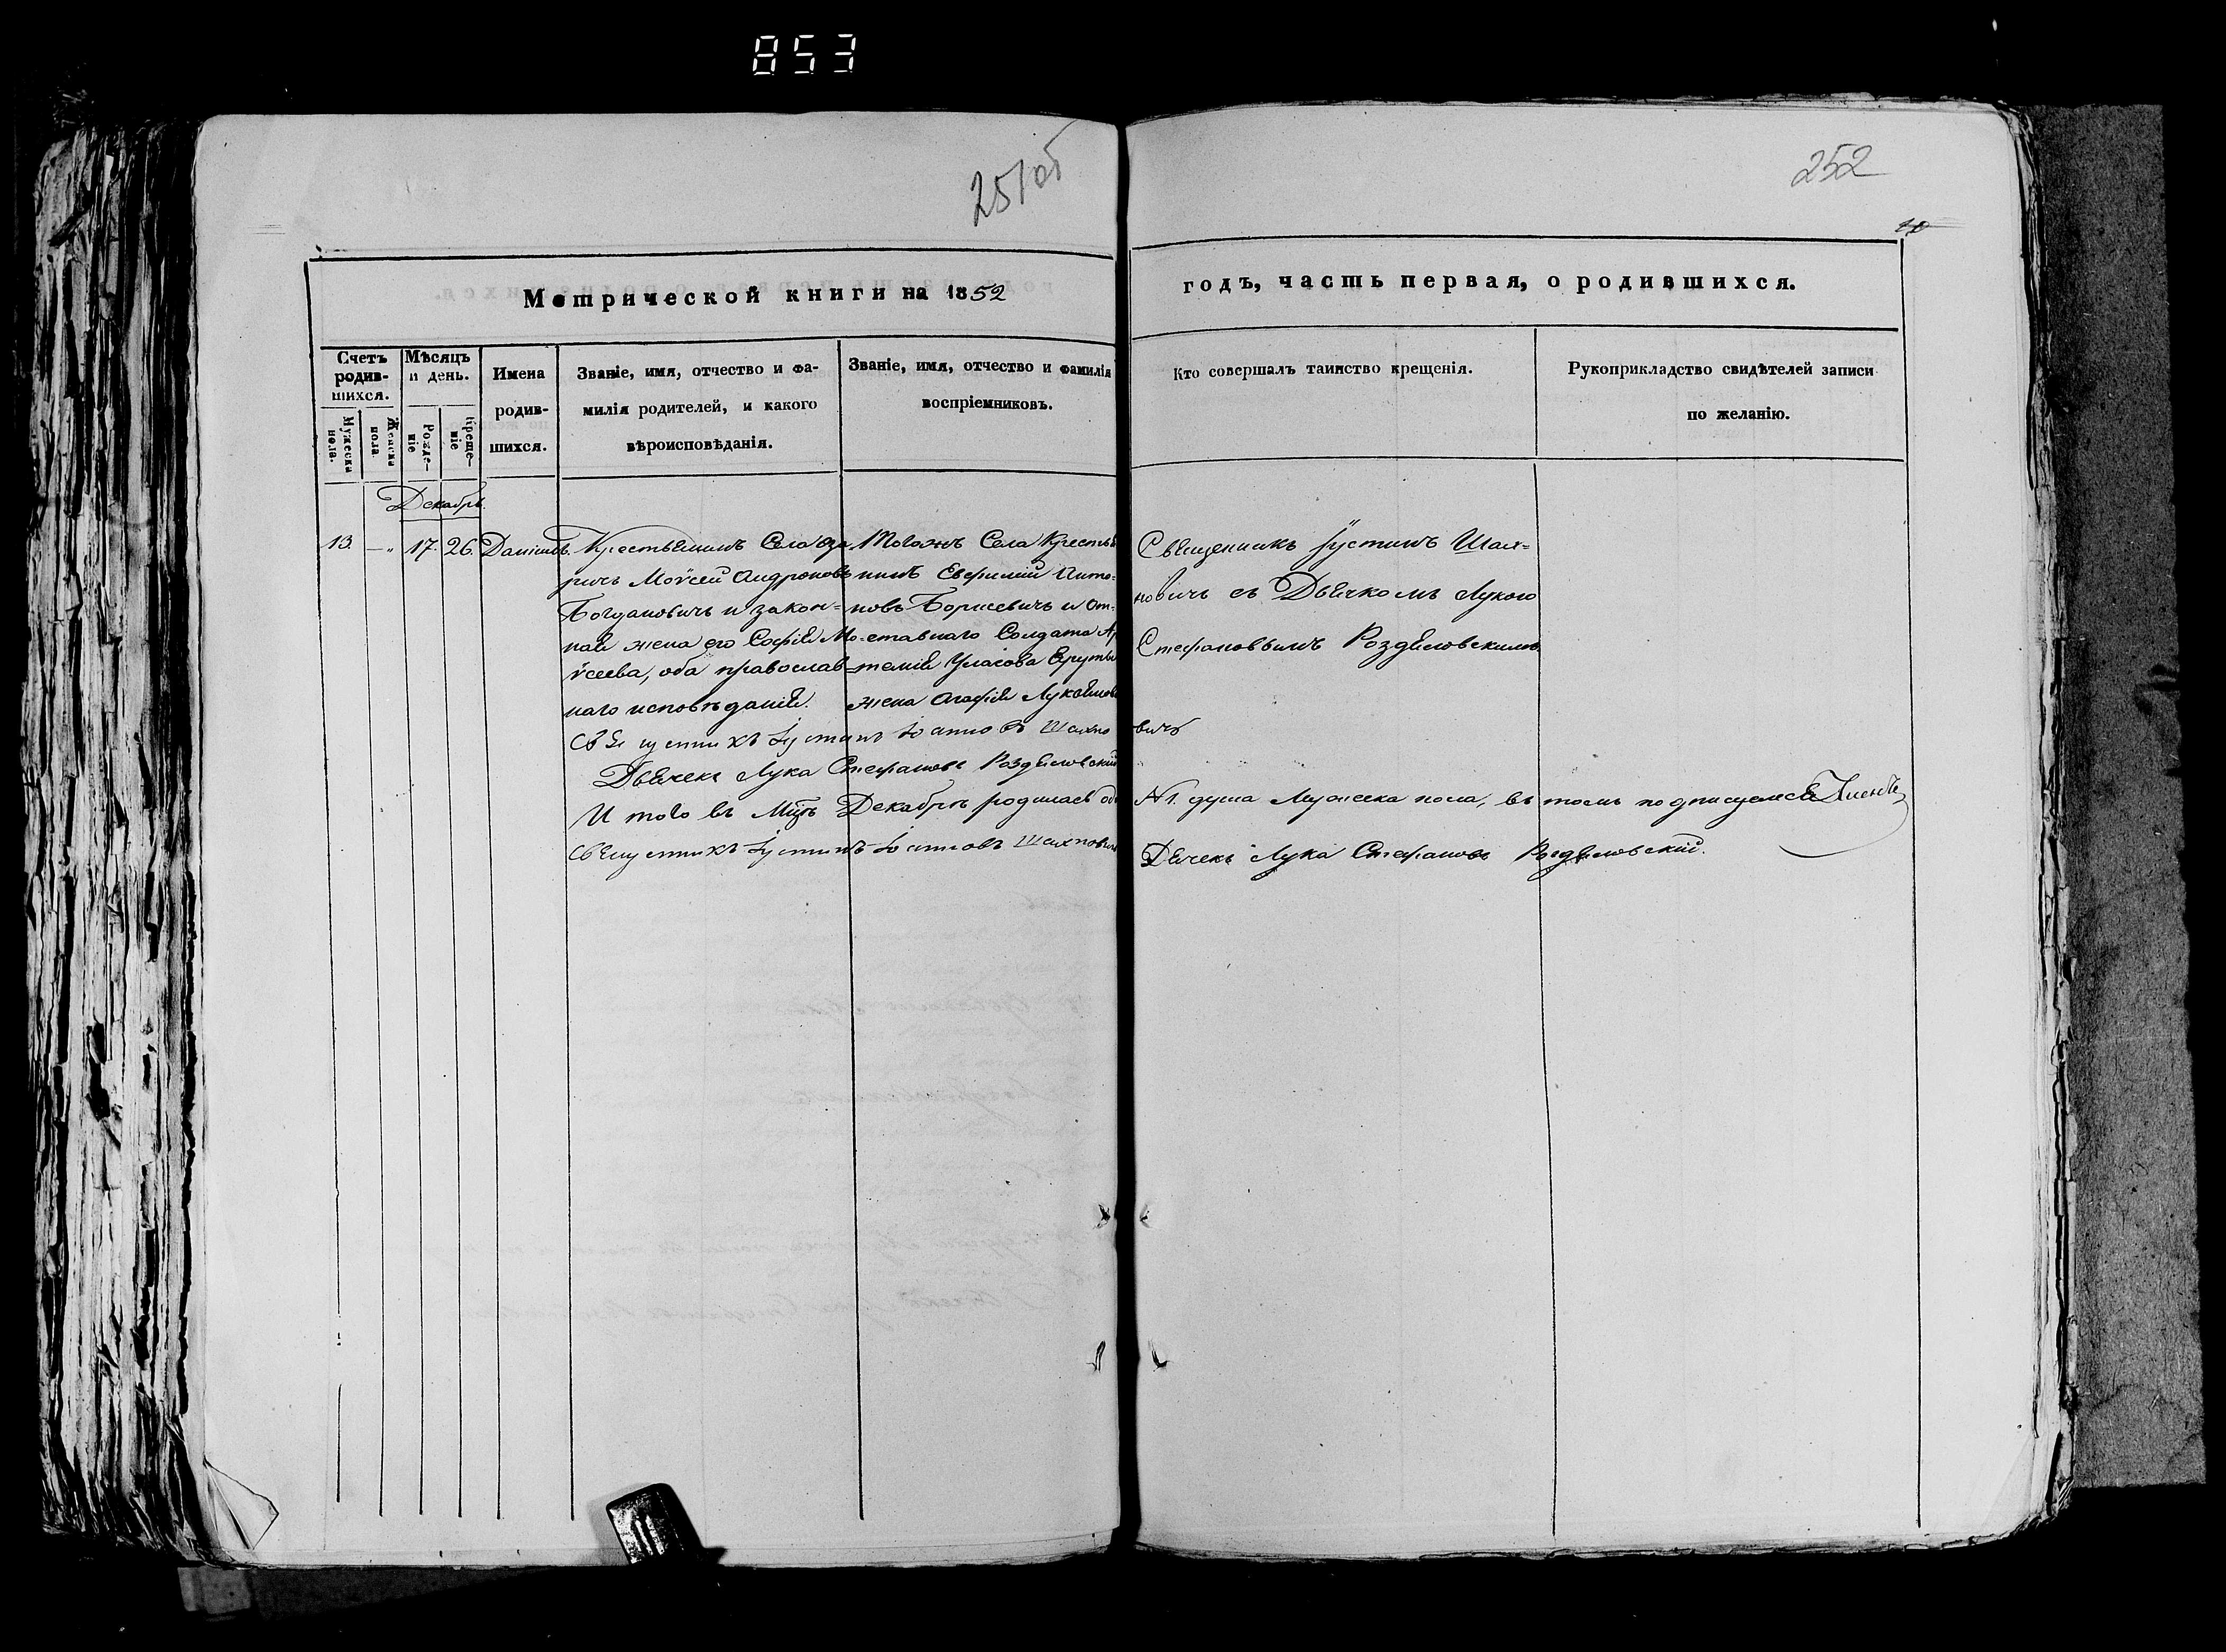 853
251об
252
Метрической книги на 1852
годъ, часть первая, о родившихся.
Счетъ родив-шихся.
Мужеска пола.
Женска пола
Мѣсяцъ и день.
Рожде-ніе
Креще-ніе
Имена
родив-
шихся.
Званіе, имя, отчество и фа-
милія родителей, и какого
вѣроисповѣданія.
Званіе, имя, отчество и фамилія
воспріемниковъ.
Кто совершалъ таинство крещенія.
Рукоприкладство свидѣтелей записи
по желанію.
Декабрь.
13. —„ 17. 26. Даніилъ.
Крестьянинъ Села Озе
ричь Моѵсей Андроновъ
Богдановичъ и закон=
ная жена его Софія Мо-
ѵсеева, оба православ-
наго исповѣданія.
Тогожъ Села Крестья
нинъ Евфимій Анто=
новъ Борисевичъ и От-
ставнаго Солдата Ар
темія Уласова
жена Агафія Лукъянова
Священникъ Іустинъ Шах=
новичъ съ Дьячкомъ Лукою
Стефановымъ Роздяловскимъ
Священникъ Іустинъ Іоанновъ Шахновичъ
Дьячекъ Лука Стефановъ Роздяловскій
И того въ Мцѣ Декабрѣ родилась об
№ 1. душа Мужеска пола, въ томъ подписуемся
Священникъ Іустинъ Іоанновъ Шахновичъ
Дьячекъ Лука Стефановъ Роздяловскій.